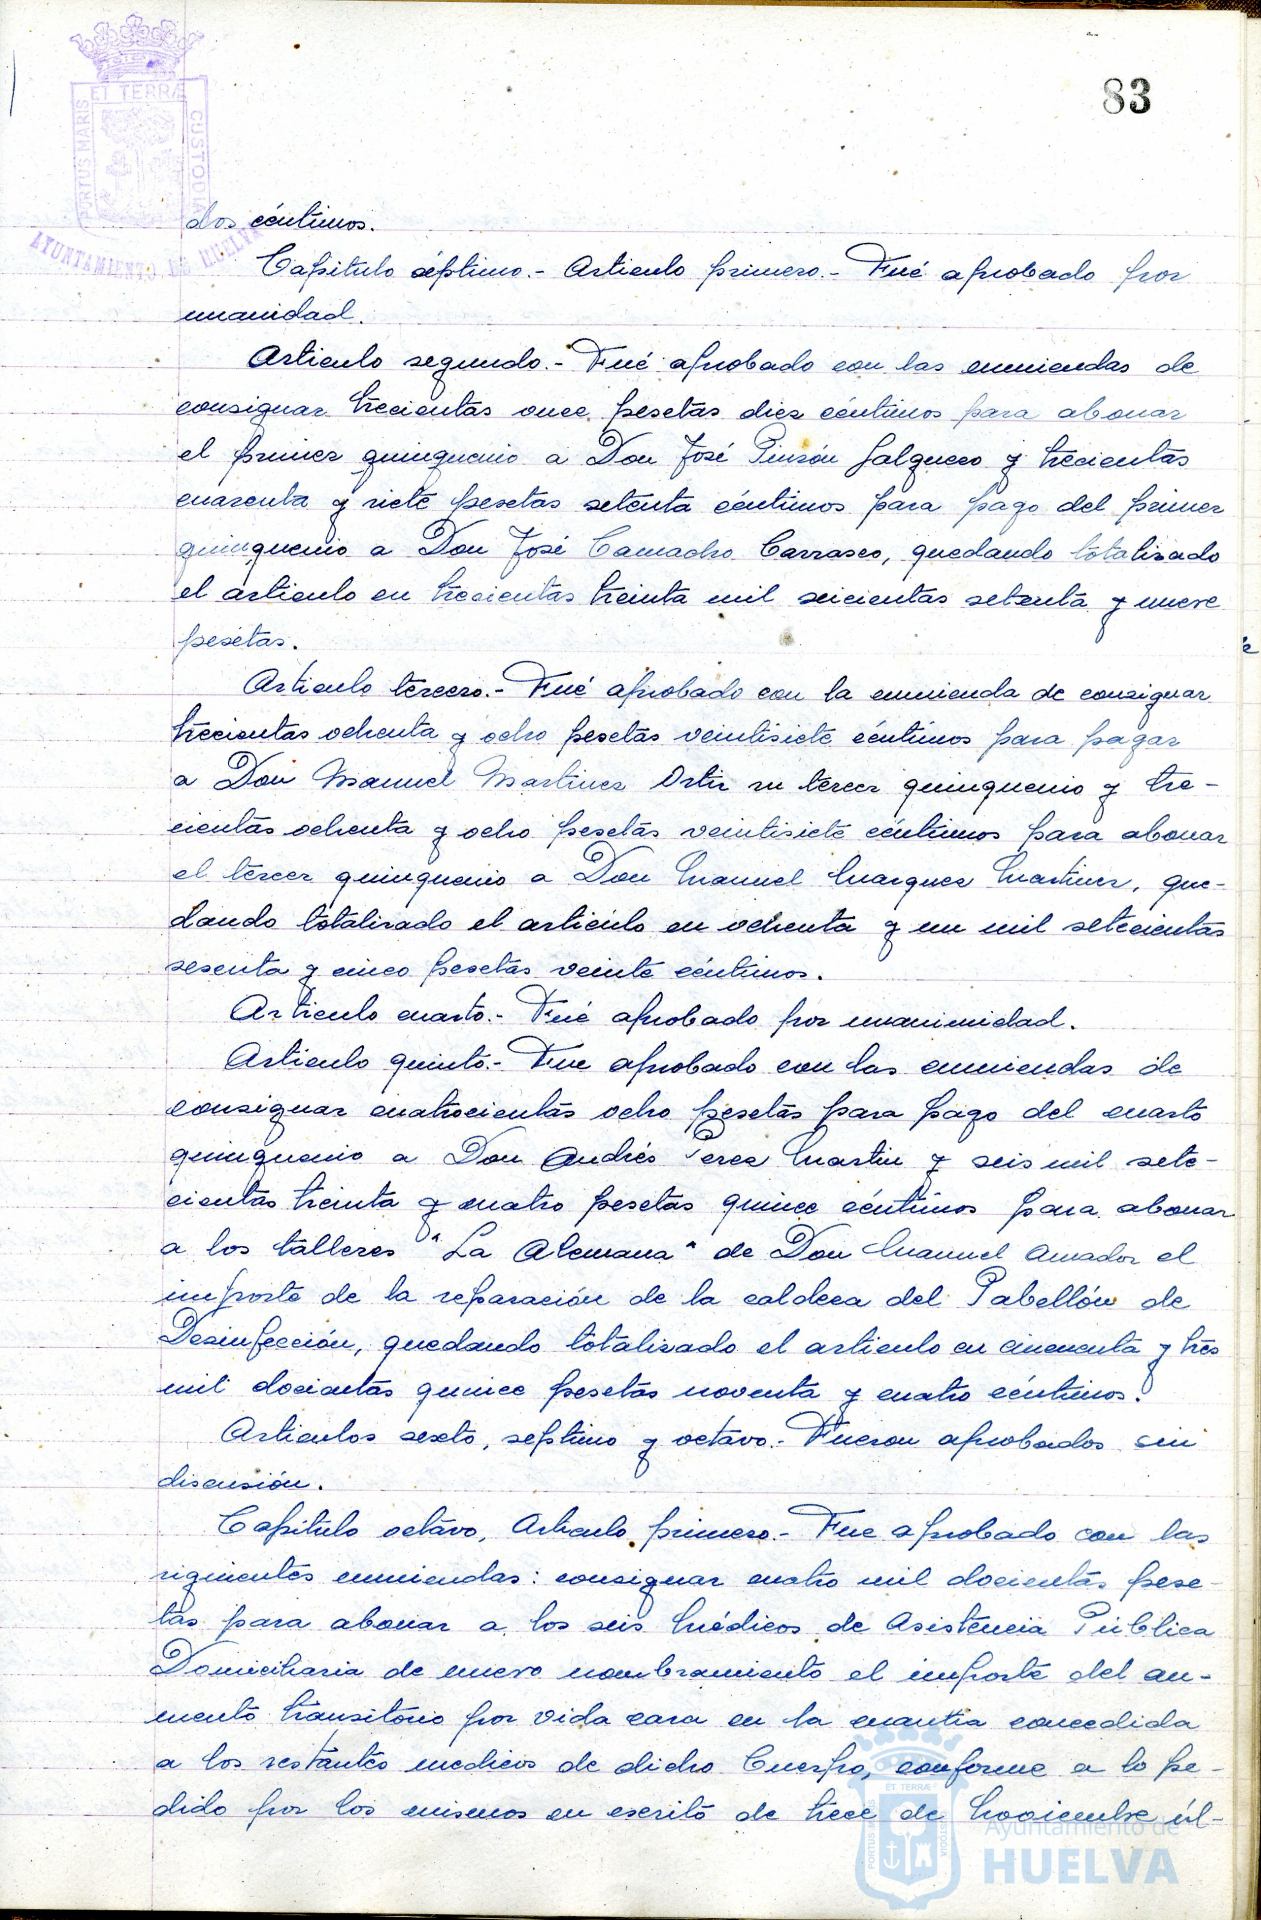 83
ET TERRÆ
PORTUS MARIS
CUSTODIA
AYUNTAMIENTO DE HUELVA
dos céntimos.
Capitulo séptimo.- Articulo primero.- Fué aprobado por
unanidad.
Articulo segundo.- Fué aprobado con las enmiendas de
consignar trecientas once pesetas diez céntimos para abonar
el primer quinquenio a Don José Pinzón Galguero y trecientas
cuarenta y siete pesetas setenta céntimos para pago del primer
quinquenio a Don José Camacho Carrasco, quedando totalizado
el articulo en trecientas treinta mil seicientas setenta y nueve
pesetas.
Articulo tercero.- Fué aprobado con la enmienda de consignar
trecientas ochenta y ocho pesetas veintisiete céntimos para pagar
a Don Manuel Martinez Ortiz su tercer quinquenio y tre-
cientas ochenta y ocho pesetas veintisiete céntimos para abonar
el tercer quinquenio a Don Manuel Marquez Martinez, que-
dando totalizado el articulo en ochenta y un mil setecientas
sesenta y cinco pesetas veinte céntimos.
Articulo cuarto.- Fué aprobado por unanimidad.
Articulo quinto.- Fue aprobado con las enmiendas de
consignar cuatrocientas ocho pesetas para pago del cuarto
quinquenio a Don Andrés Perez Martin y seis mil sete-
cientas treinta y cuatro pesetas quince céntimos para abonar
a los talleres "La Alemana" de Don Manuel Amador el
importe de la reparación de la caldera del Pabellón de
Desinfección, quedando totalizado el articulo en cincuenta y tres
mil docientas quince pesetas noventa y cuatro céntimos.
Articulos sexto, septimo y octavo.- Fueron aprobados sin
discusión.
Capítulo octavo, Articulo primero.- Fue aprobado con las
siguientes enmiendas: consignar cuatro mil docientas pese-
tas para abonar a los seis Médicos de Asistencia Pública
Domiciliaria de nuevo nombramiento el importe del au-
mento transitorio por vida cara en la cuantia concedida
a los restantes medicos de dicho Cuerpo, conforme a lo pe-
dido por los mismos en escrito de trece de Noviembre úl-
ET TERRÆ
PORTUS MARIS
CUSTODIA
Ayuntamiento de
HUELVA